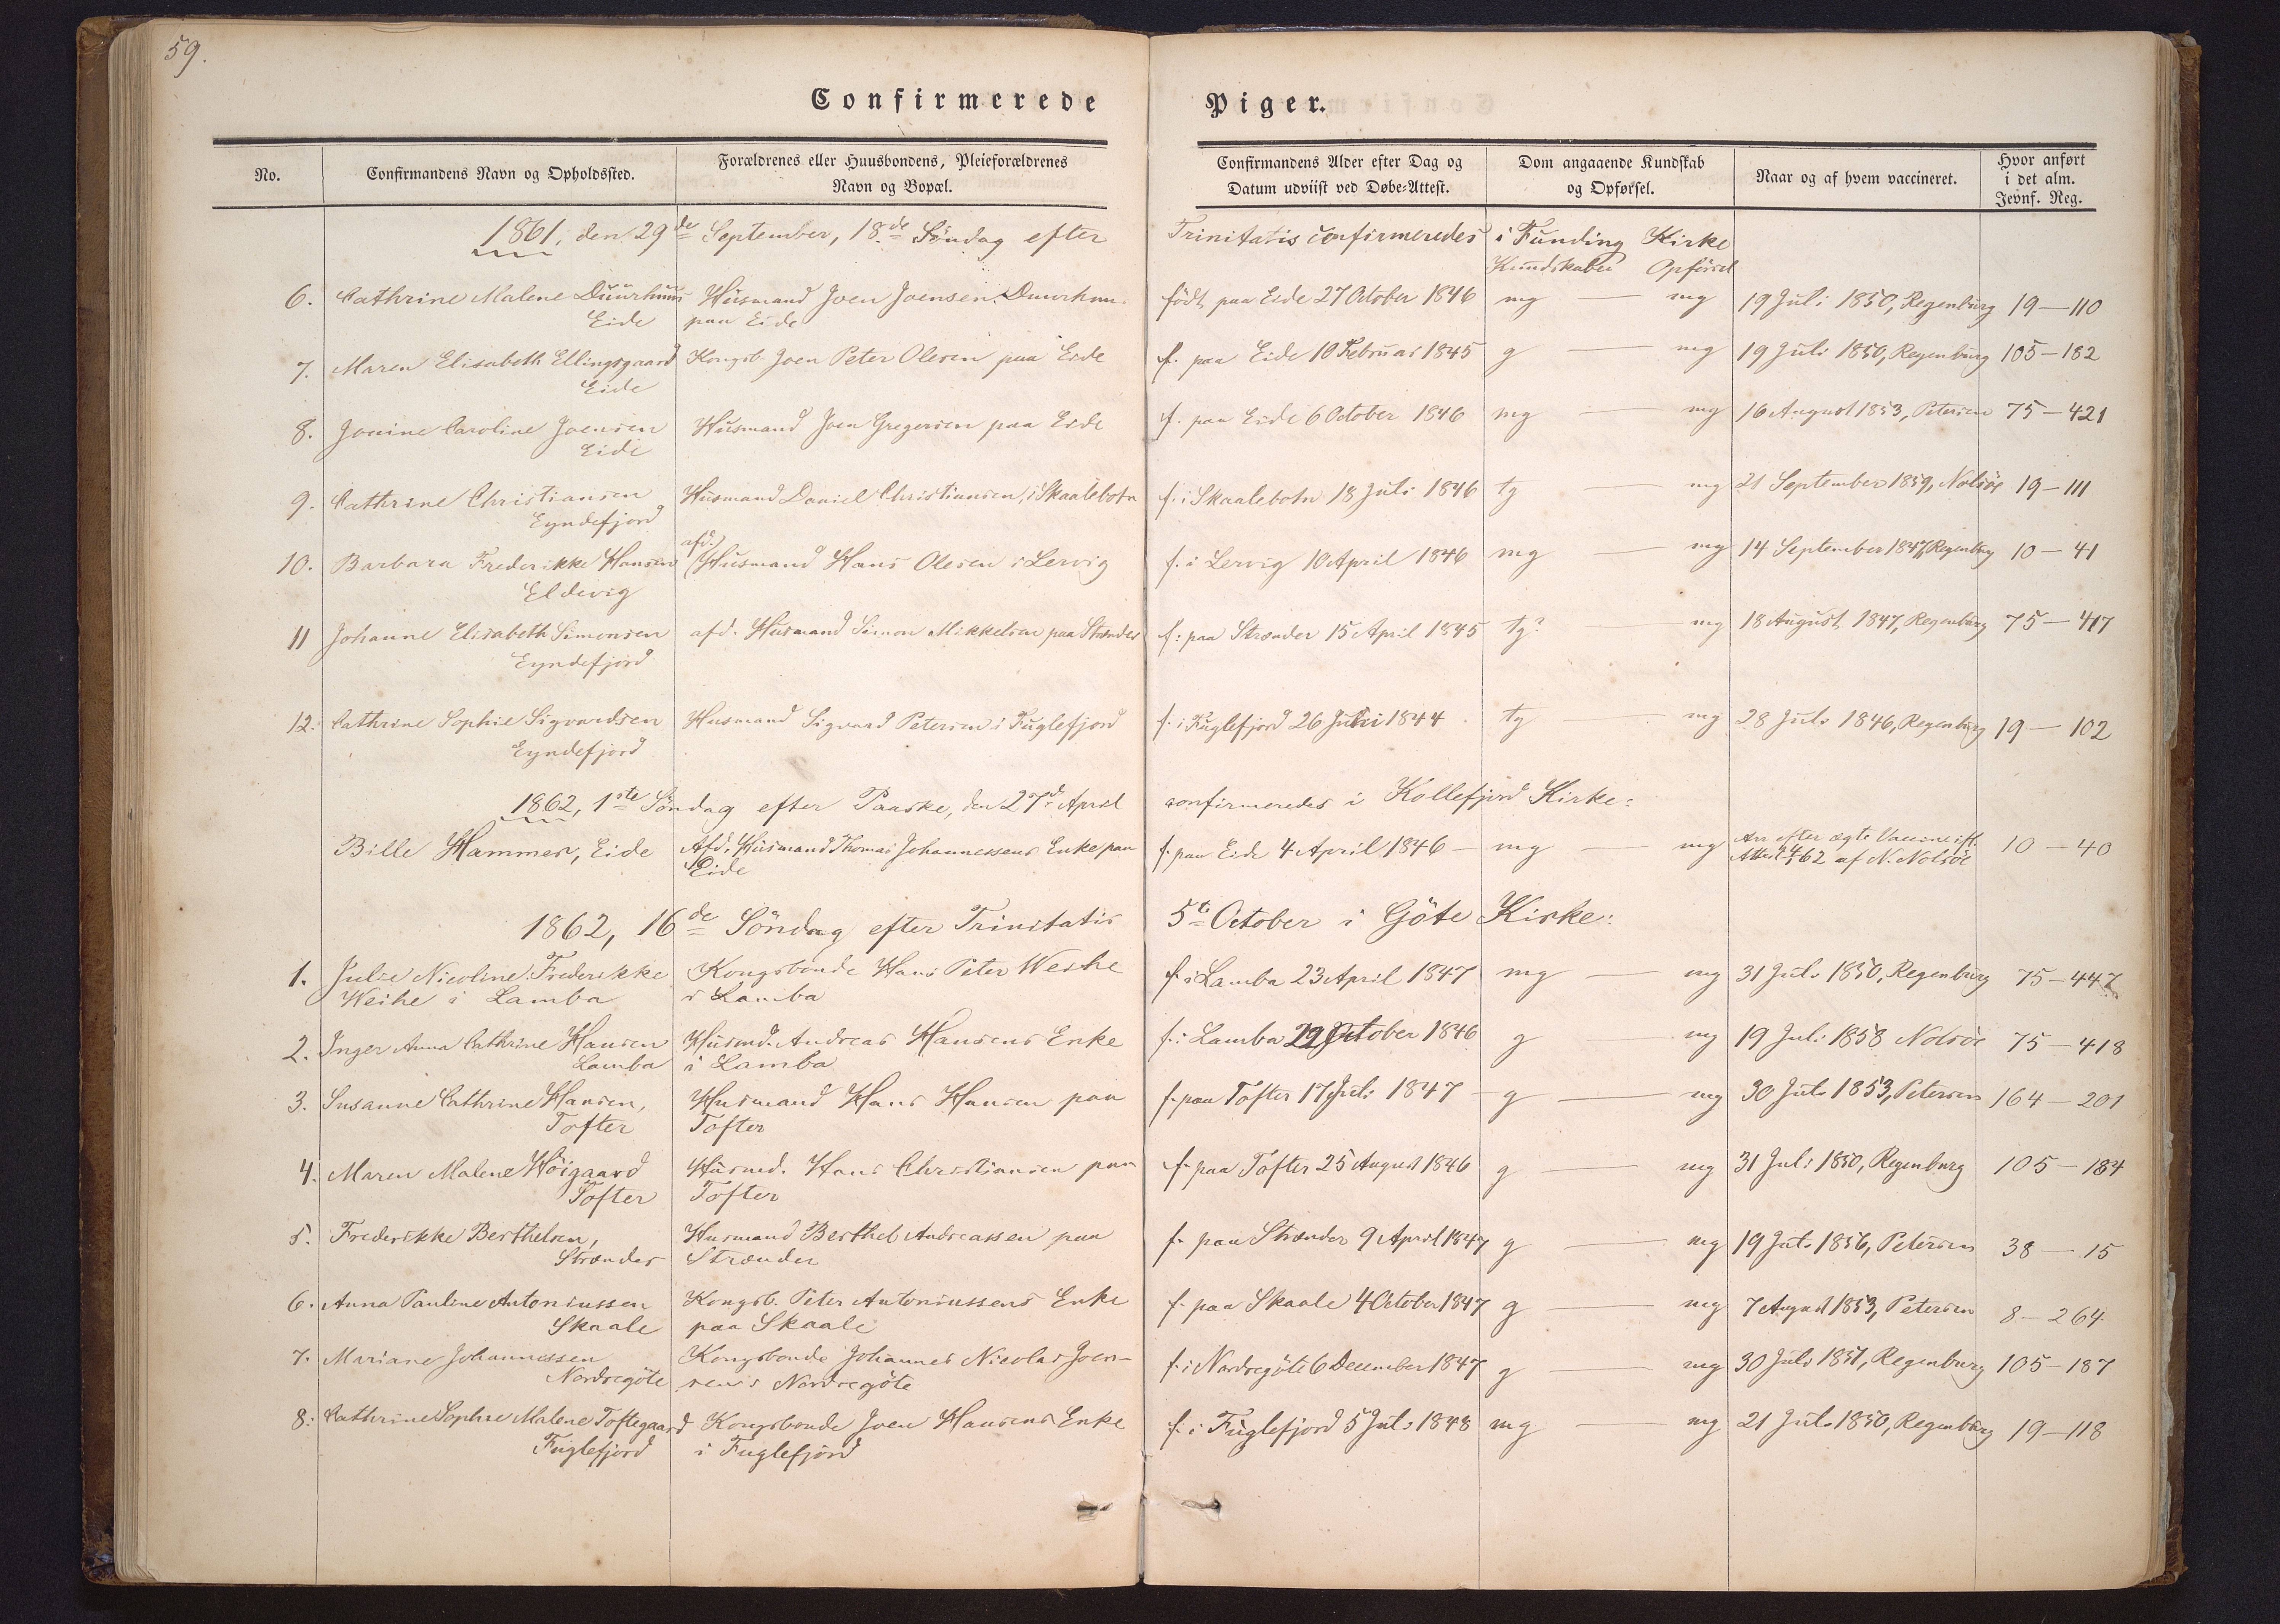 59.
Confirmerede Piger.
No.
Confirmandens Navn og Opholdssted.
Forældrenes eller Huusbondens, Pleieforældrenes
Navn og Bopæl.
Confirmandens Alder efter Dag og
Datum udviist ved Døbe-Attest.
Dom angaaende Kundskab
og Opførsel.
Naar og af hvem vaccineret.
Hvor anført
i det alm.
Jevnf. Reg.
1861, den 29de September, 18de Söndag efter Trinitatis confirmeredes i Funding Kirke
Kundskaber Opförsel
6. Cathrine Malene Duurhuus Husmand Joen Joensen Duurhuu. födt paa Eide 27 October 1846 mg — mg 19 Juli 1850, Regenburg 19—110
Eide paa Eide
7. Maren Elisabeth Ellingsgaard Kongsb. Joen Peter Olesen paa Eide f. paa Eide 10 Februar 1845 g — mg 19 Juli 1850, Regenburg 105—182
Eide
8. Jonine Caroline Joensen Husmand Joen Gregersen paa Eide f. paa Eide 6 October 1846 mg — mg 16 August 1853, Petersen 75—421
Eide
9. Cathrine Christiansen Husmand Daniel Christiansen, i Skaalebotn f. i Skaalebotn 18 Juli 1846 tg — mg 21 September 1859, Nolsöe 19—111
Eyndefjord
10. Barbara Frederikke Hansen afd. Husmand Hans Olesen i Lervig f. i Lervig 10 April 1846 mg — mg 14 September 1847, Regenburg 10—41
Eldevig
11 Johanne Elisabeth Simonsen afd. Husmand Simon Mikkelsen paa Strænder f. paa Strænder 15 April 1845 tg? — mg 18 August 1847, Regenburg 75—417
Eyndefjord
12. Cathrine Sophie Sigvardsen Husmand Sigvard Petersen i Fuglefjord f. i Fuglefjord 26 Juli 1844 tg — mg 28 Juli 1846, Regenburg 19—102
Eyndefjord
1862, 1ste Söndag efter Paaske, den 27d. April confirmeredes i Kollefjord Kirke:
Bille Hammer, Eide Afd. Husmand Thomas Johannessens Enke paa f. paa Eide 4 April 1846 — mg — mg Arr efter ægte Vaccine ift. 10—40
Eide Attest 62 af N. Nolsöe
1862, 16de Söndag efter Trinitatis 5te October i Göte Kirke:
1. Julie Nicoline Frederikke Kongsbonde Hans Peter Weihe f. i Lamba 23 April 1847 mg — mg 31 Juli 1850, Regenburg 75—447
Weihe i Lamba i Lamba
2. Inger Anna Cathrine Hansen Husmd. Andreas Hansens Enke f. i Lamba 29 October 1846 g — mg 19 Juli 1858 Nolsöe 75—418
Lamba i Lamba
3. Susanne Cathrine Hansen, Husmand Hans Hansen paa f. paa Tofter 17 Juli 1847 — g — mg 30 Juli 1853, Petersen 164—201
Tofter Tofter
4. Maren Malene Höigaard Husmd. Hans Christiansen paa f. paa Tofter 25 August 1846 g — mg 31 Juli 1850, Regenburg 105—184
Tofter Tofter
5. Frederikke Berthelsen, Husmand Berthel Andreassen paa f. paa Strænder 9 April 1847 g — mg 19 Juli 1856, Petersen 38—15
Strænder Strænder
6. Anna Pauline Antoniussen Kongsb. Peter Antoniussens Enke f. paa Skaale 4 October 1847 g — mg 7 August 1853, Petersen 8—264
Skaale paa Skaale
7. Mariane Johannessen Kongsbonde Johannes Nicolas Joen- f. i Nordregöte 6 December 1847 g — mg 30 Juli 1851, Regenburg 105—187
Nordregöte sen i Nordregöte
8. Cathrine Sophie Malene Toftegaard Kongsbonde Joen Hansens Enke f. i Fuglefjord 5 Juli 1848 mg — mg 21 Juli 1850, Regenburg 19—118
Fuglefjord i Fuglefjord